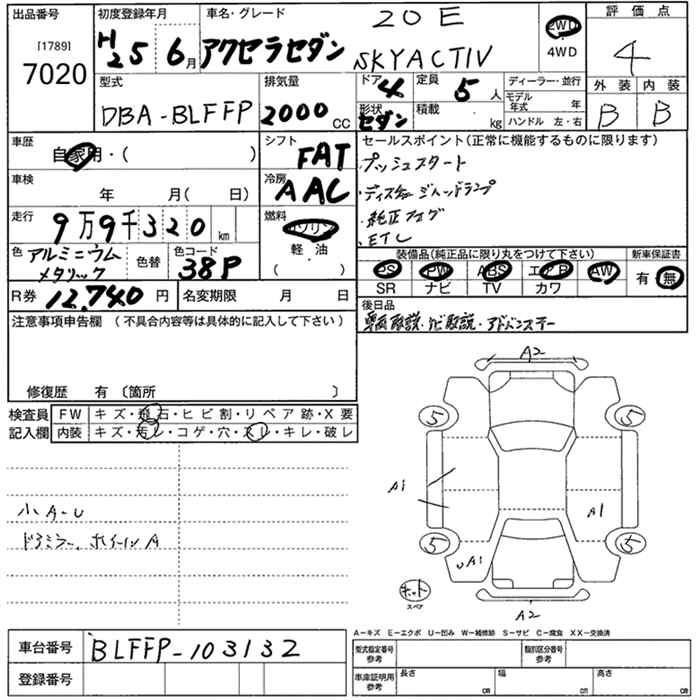 出品番号 初度登録年月 車名・グレード 20E 2WD 4WD 評価点
[1789]
7020 H25 6月 アクセラセダン SKYACTIV 4
型式 排気量 ドア 4 定員 5人 ディーラー・並行 外装 内装
DBA-BLFFP 2000CC 形状 セダン 積載 kg モデル年式 年 B B
ハンドル 左・右
車歴 自家用・( ) シフト FAT セールスポイント(正常に機能するものに限ります)
・プッシュスタート
車検 年 月( 日) 冷房 AAC
・純正アルミ
・ETC
走行 9万9千320km 燃料 ガソリン 軽・油 ( )
装備品(純正品に限り丸をつけて下さい) 新車保証書
色 アルミニウムメタリック 色替 色コード 38P
PS PW ABS エアB AW 有・無
SR ナビ TV カワ
R券 12,740円 名変期限 月 日
後日品
車両取説・ナビ取説・アドバンスキー
注意事項申告欄 (不具合内容等は具体的に記入して下さい)
修復歴 有 〔箇所 〕
検査員記入欄 FW キズ・飛石・ヒビ割・リペア跡・X要
内装 キズ・汚レ・コゲ・穴・スレ・キレ・破レ
A2
5 5
A1 A1
小A-U
ドアミラー、ホイールA
5 5
UA1
キット
スペア
A2
A-キズ E-エクボ U-凹み W-補修跡 S-サビ C-腐食 XX-交換済
車台番号 BLFFP-103132
登録番号
型式指定番号 参考 類別区分番号 参考
車庫証明用 参考 長さ cm 幅 cm 高さ cm